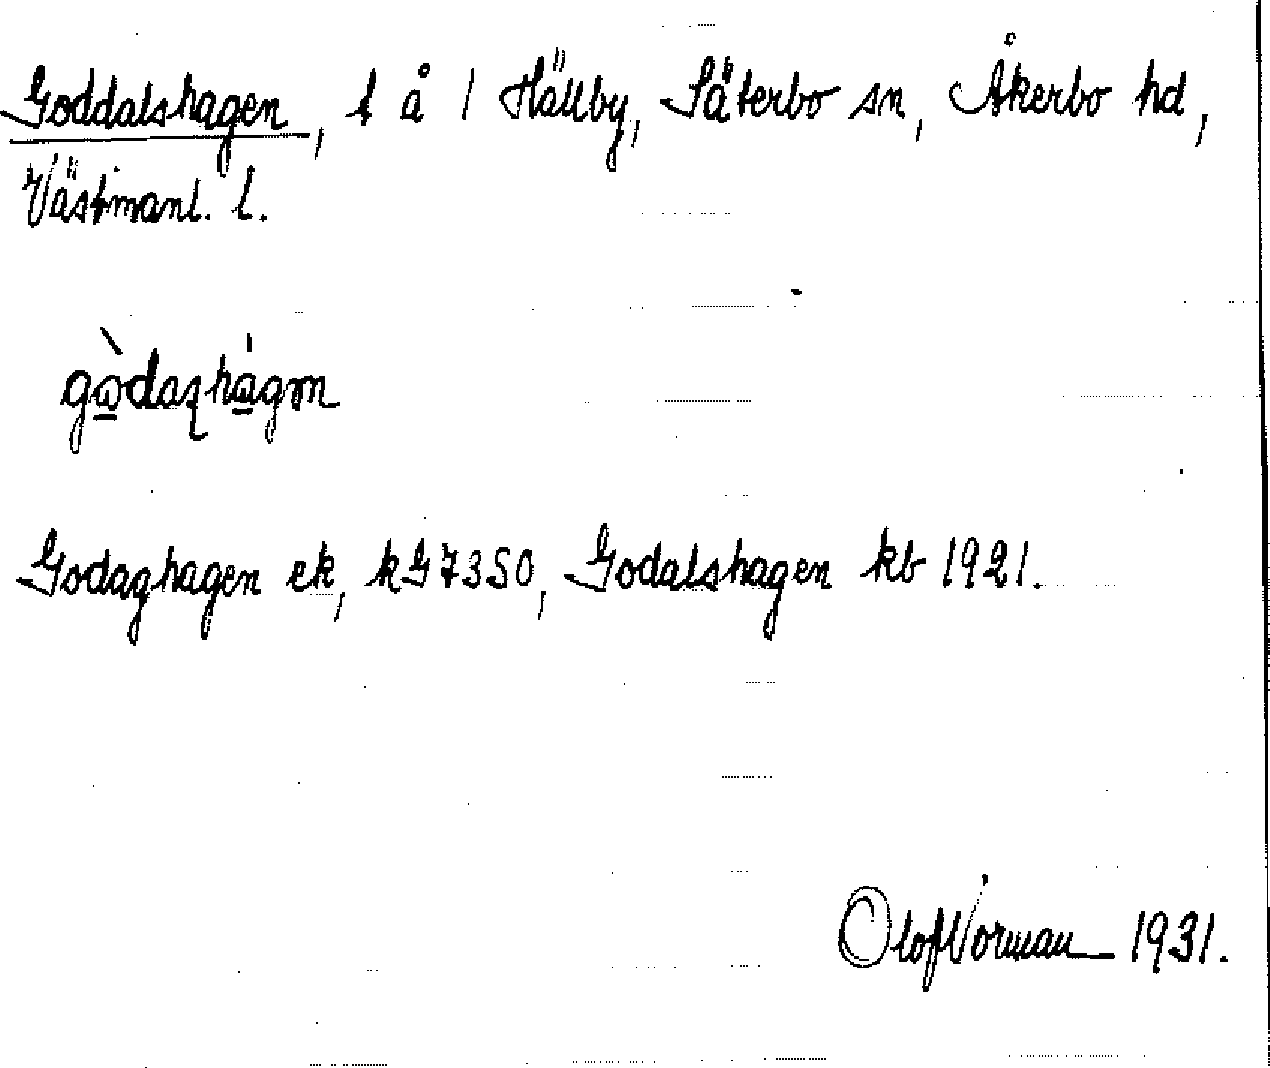 Goddalshagen, t å 1 Hällby, Säterbo sn, Åkerbo hd,
Västmanl. l.
Godaghagen ek, kG7350, Godalshagen kb 1921.
Olof Norman 1931.